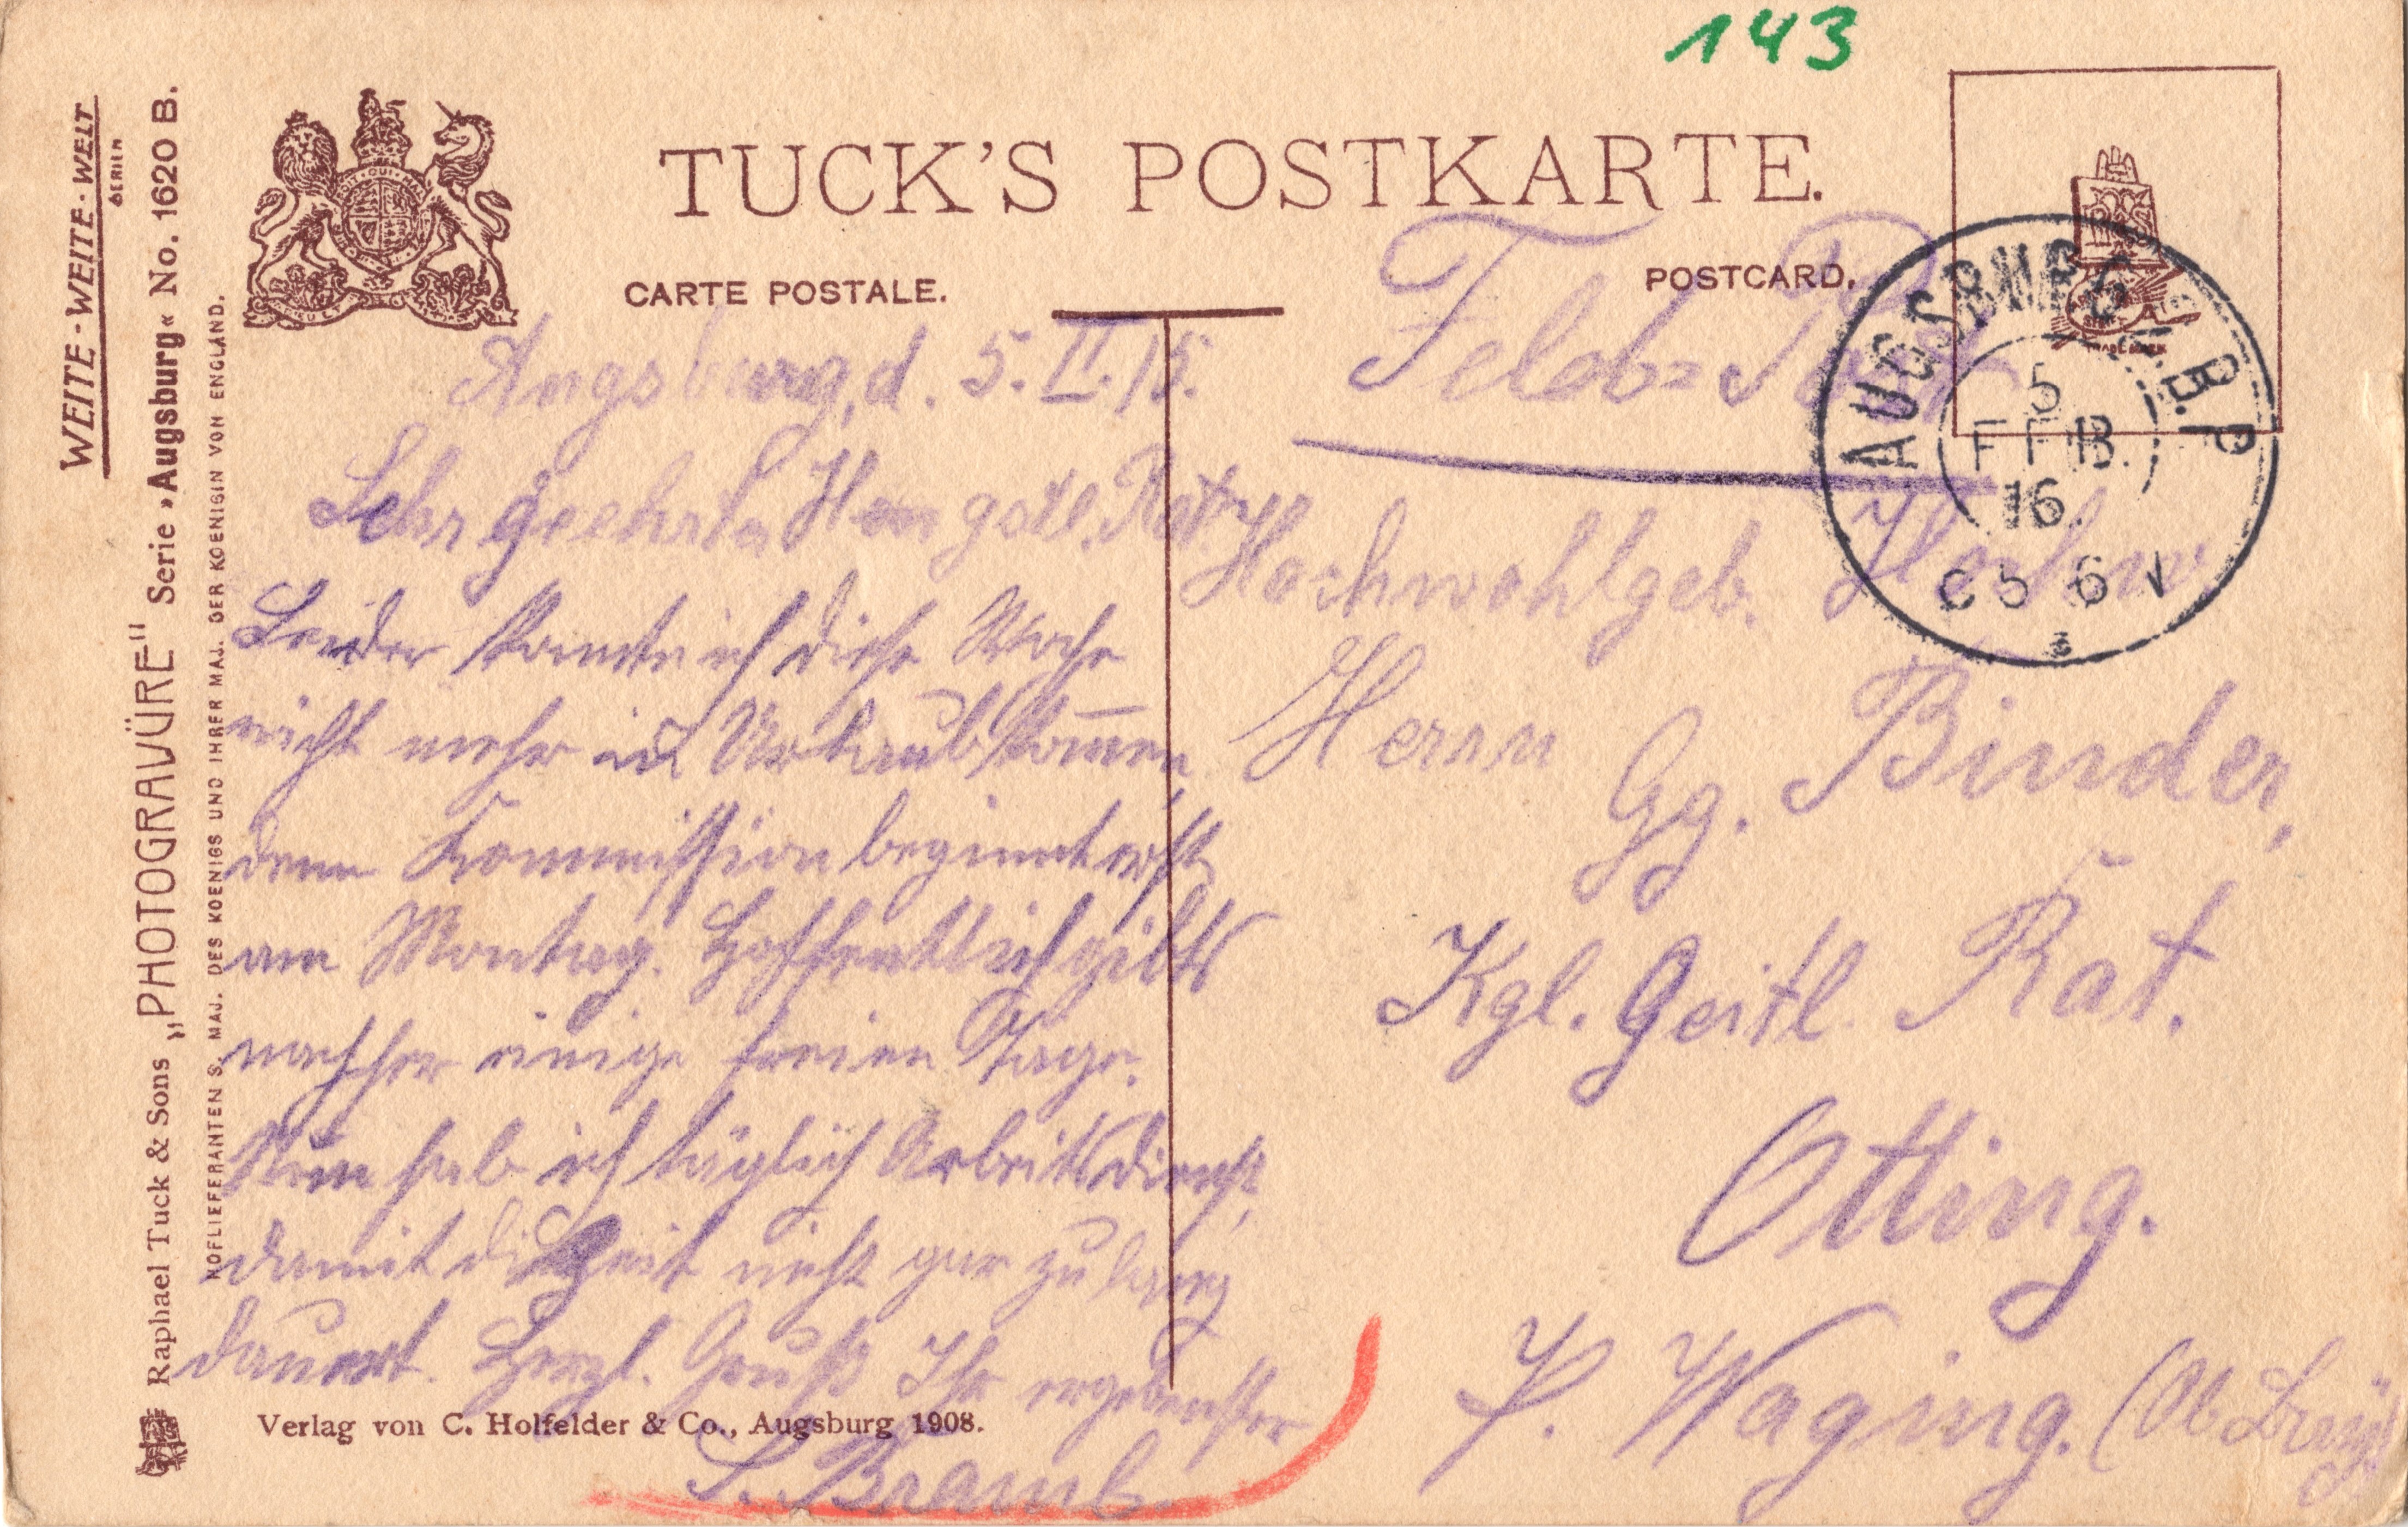 143
TUCK'S POSTKARTE.
CARTE POSTALE.
POSTCARD.
WEITE-WEITE-WELT
SERIEN
Raphael Tuck & Sons „PHOTOGRAVÜRE" Serie »Augsburg« No. 1620 B.
HOFLIEFERANTEN S. MAJ. DES KOENIGS UND IHRER MAJ. DER KOENIGIN VON ENGLAND.
AUGSBURG 1. B.P.
5
FEB.
16.
5 6 V
Augsburg, d. 5. II. 15.
Sehr geehrter Herr geistl. Rat!
Leider konnte ich diese Woche
nicht mehr in Urlaub kom̄en,
denn Kommission beginnt erst
am Montag. Hoffentlich gibts
nachher einige freien Tage.
Nun hab ich täglich Arbeitsdienst,
damit die Zeit nicht gar zu lang
dauert. Herzl. Gruß Ihr ergebenster
Feld-Post
Hochwohlgeb. Hochw.
Herrn Gg. Binder,
Kgl. Geistl. Rat.
Otting.
P. Waging. (Ob. Bay.)
Verlag von C. Holfelder & Co., Augsburg 1908.